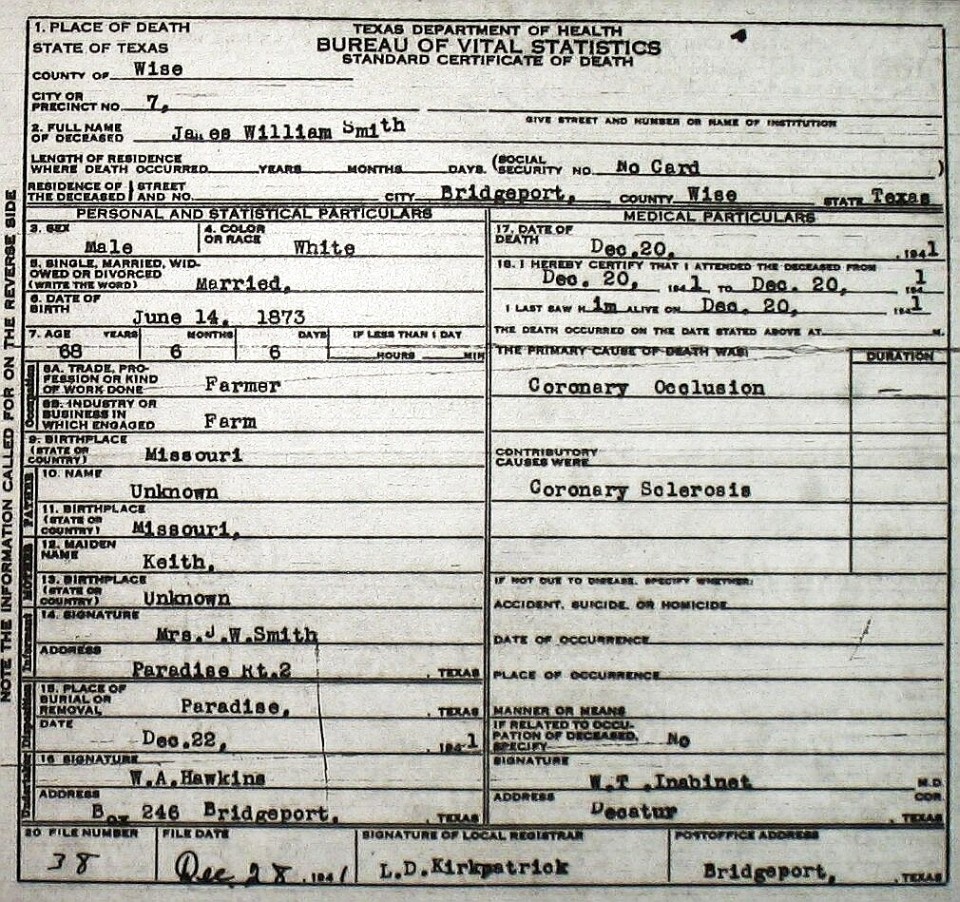 1. PLACE OF DEATH
STATE OF TEXAS
COUNTY OF Wise
CITY OR PRECINCT NO. 7,
TEXAS DEPARTMENT OF HEALTH
BUREAU OF VITAL STATISTICS
STANDARD CERTIFICATE OF DEATH
GIVE STREET AND NUMBER OR NAME OF INSTITUTION
2. FULL NAME OF DECEASED James William Smith
LENGTH OF RESIDENCE WHERE DEATH OCCURRED YEARS MONTHS DAYS. (SOCIAL SECURITY NO. No Card )
RESIDENCE OF THE DECEASED STREET AND NO. CITY Bridgeport, COUNTY Wise STATE Texas
PERSONAL AND STATISTICAL PARTICULARS
3. SEX Male
4. COLOR OR RACE White
5. SINGLE, MARRIED, WIDOWED OR DIVORCED (WRITE THE WORD) Married,
6. DATE OF BIRTH June 14, 1873
7. AGE YEARS MONTHS DAYS IF LESS THAN 1 DAY
68 6 6 HOURS MIN
Occupation
8A. TRADE, PROFESSION OR KIND OF WORK DONE Farmer
8B. INDUSTRY OR BUSINESS IN WHICH ENGAGED Farm
9. BIRTHPLACE (STATE OR COUNTRY) Missouri
FATHER
10. NAME Unknown
11. BIRTHPLACE (STATE OR COUNTRY) Missouri,
MOTHER
12. MAIDEN NAME Keith,
13. BIRTHPLACE (STATE OR COUNTRY) Unknown
Informant
14. SIGNATURE Mrs.J.W.Smith
ADDRESS Paradise Rt.2 , TEXAS
Disposition
15. PLACE OF BURIAL OR REMOVAL Paradise, , TEXAS
DATE Dec.22, , 1941
Undertaker
16 SIGNATURE W.A.Hawkins
ADDRESS Box 246 Bridgeport, , TEXAS
MEDICAL PARTICULARS
17. DATE OF DEATH Dec.20, , 1941
18. I HEREBY CERTIFY THAT I ATTENDED THE DECEASED FROM
Dec. 20, , 1941 TO Dec. 20, 1
I LAST SAW H im ALIVE ON Dec. 20, 1941
THE DEATH OCCURRED ON THE DATE STATED ABOVE AT M.
THE PRIMARY CAUSE OF DEATH WAS: DURATION
Coronary Occlusion —
CONTRIBUTORY CAUSES WERE
Coronary Sclerosis
IF NOT DUE TO DISEASE, SPECIFY WHETHER:
ACCIDENT, SUICIDE, OR HOMICIDE
DATE OF OCCURRENCE
PLACE OF OCCURRENCE , TEXAS
MANNER OR MEANS
IF RELATED TO OCCUPATION OF DECEASED, SPECIFY No
SIGNATURE W.T .Inabinet M.D.
COR.
ADDRESS Decatur , TEXAS
20 FILE NUMBER 38
FILE DATE Dec 28 , 1941
SIGNATURE OF LOCAL REGISTRAR L.D.Kirkpatrick
POSTOFFICE ADDRESS Bridgeport, , TEXAS
NOTE THE INFORMATION CALLED FOR ON THE REVERSE SIDE